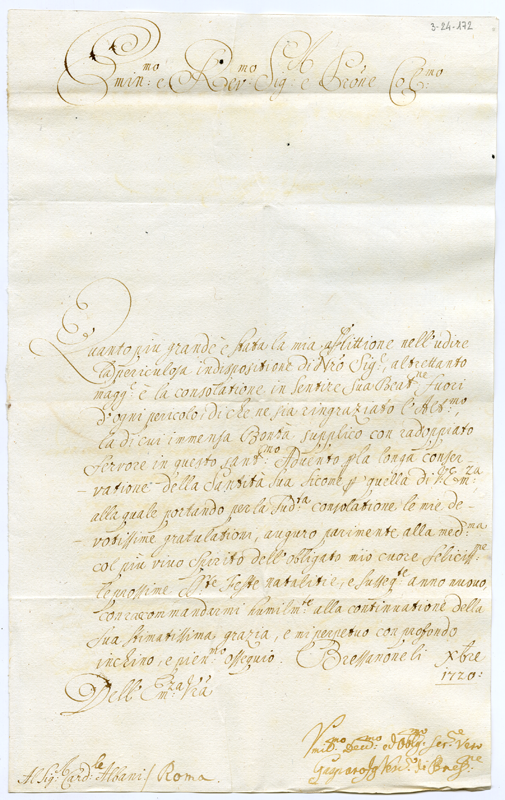 3-24-172
Emin:mo e Rev:mo Sig:r e Prone Col:mo
Quanto più grande è stata la mia afflittione nell'udire
la pericolosa indispositione di Nro Sig:e, altrettanto
magg:e è la consolatione in sentire Sua Beat:ne fuori
d'ogni pericolo, di che ne sia ringraziato l'Alt:mo,
la di cui immensa Bontà supplico con radoppiato
fervore in questo sant:mo Avvento p la longa conser-
-vatione della Santità Sua sicome p quella di V:E:m:za
alla quale portando per la sud:ta consolatione le mie de-
votissime gratulationi, auguro parimente alla med:ma
col più vivo spirito dell'obligato mio cuore feliciss:me
le prossime S:te Feste natalitie, e susseg:te anno nuovo,
con raccommandarmi humilm:te alla continuatione della
sua stimatissima grazia, e mi perpetuo con profondo
inchino, e pien:mo ossequio. Bressanone li Xbre
1720:
Dell' Em:za V:ra
Um:mo Dev:mo ed Obl:mo Ser:e Vero
Gasparo Ig: Vesc:o di Bress:ne
Al Sig:r Card:le Albani / Roma.